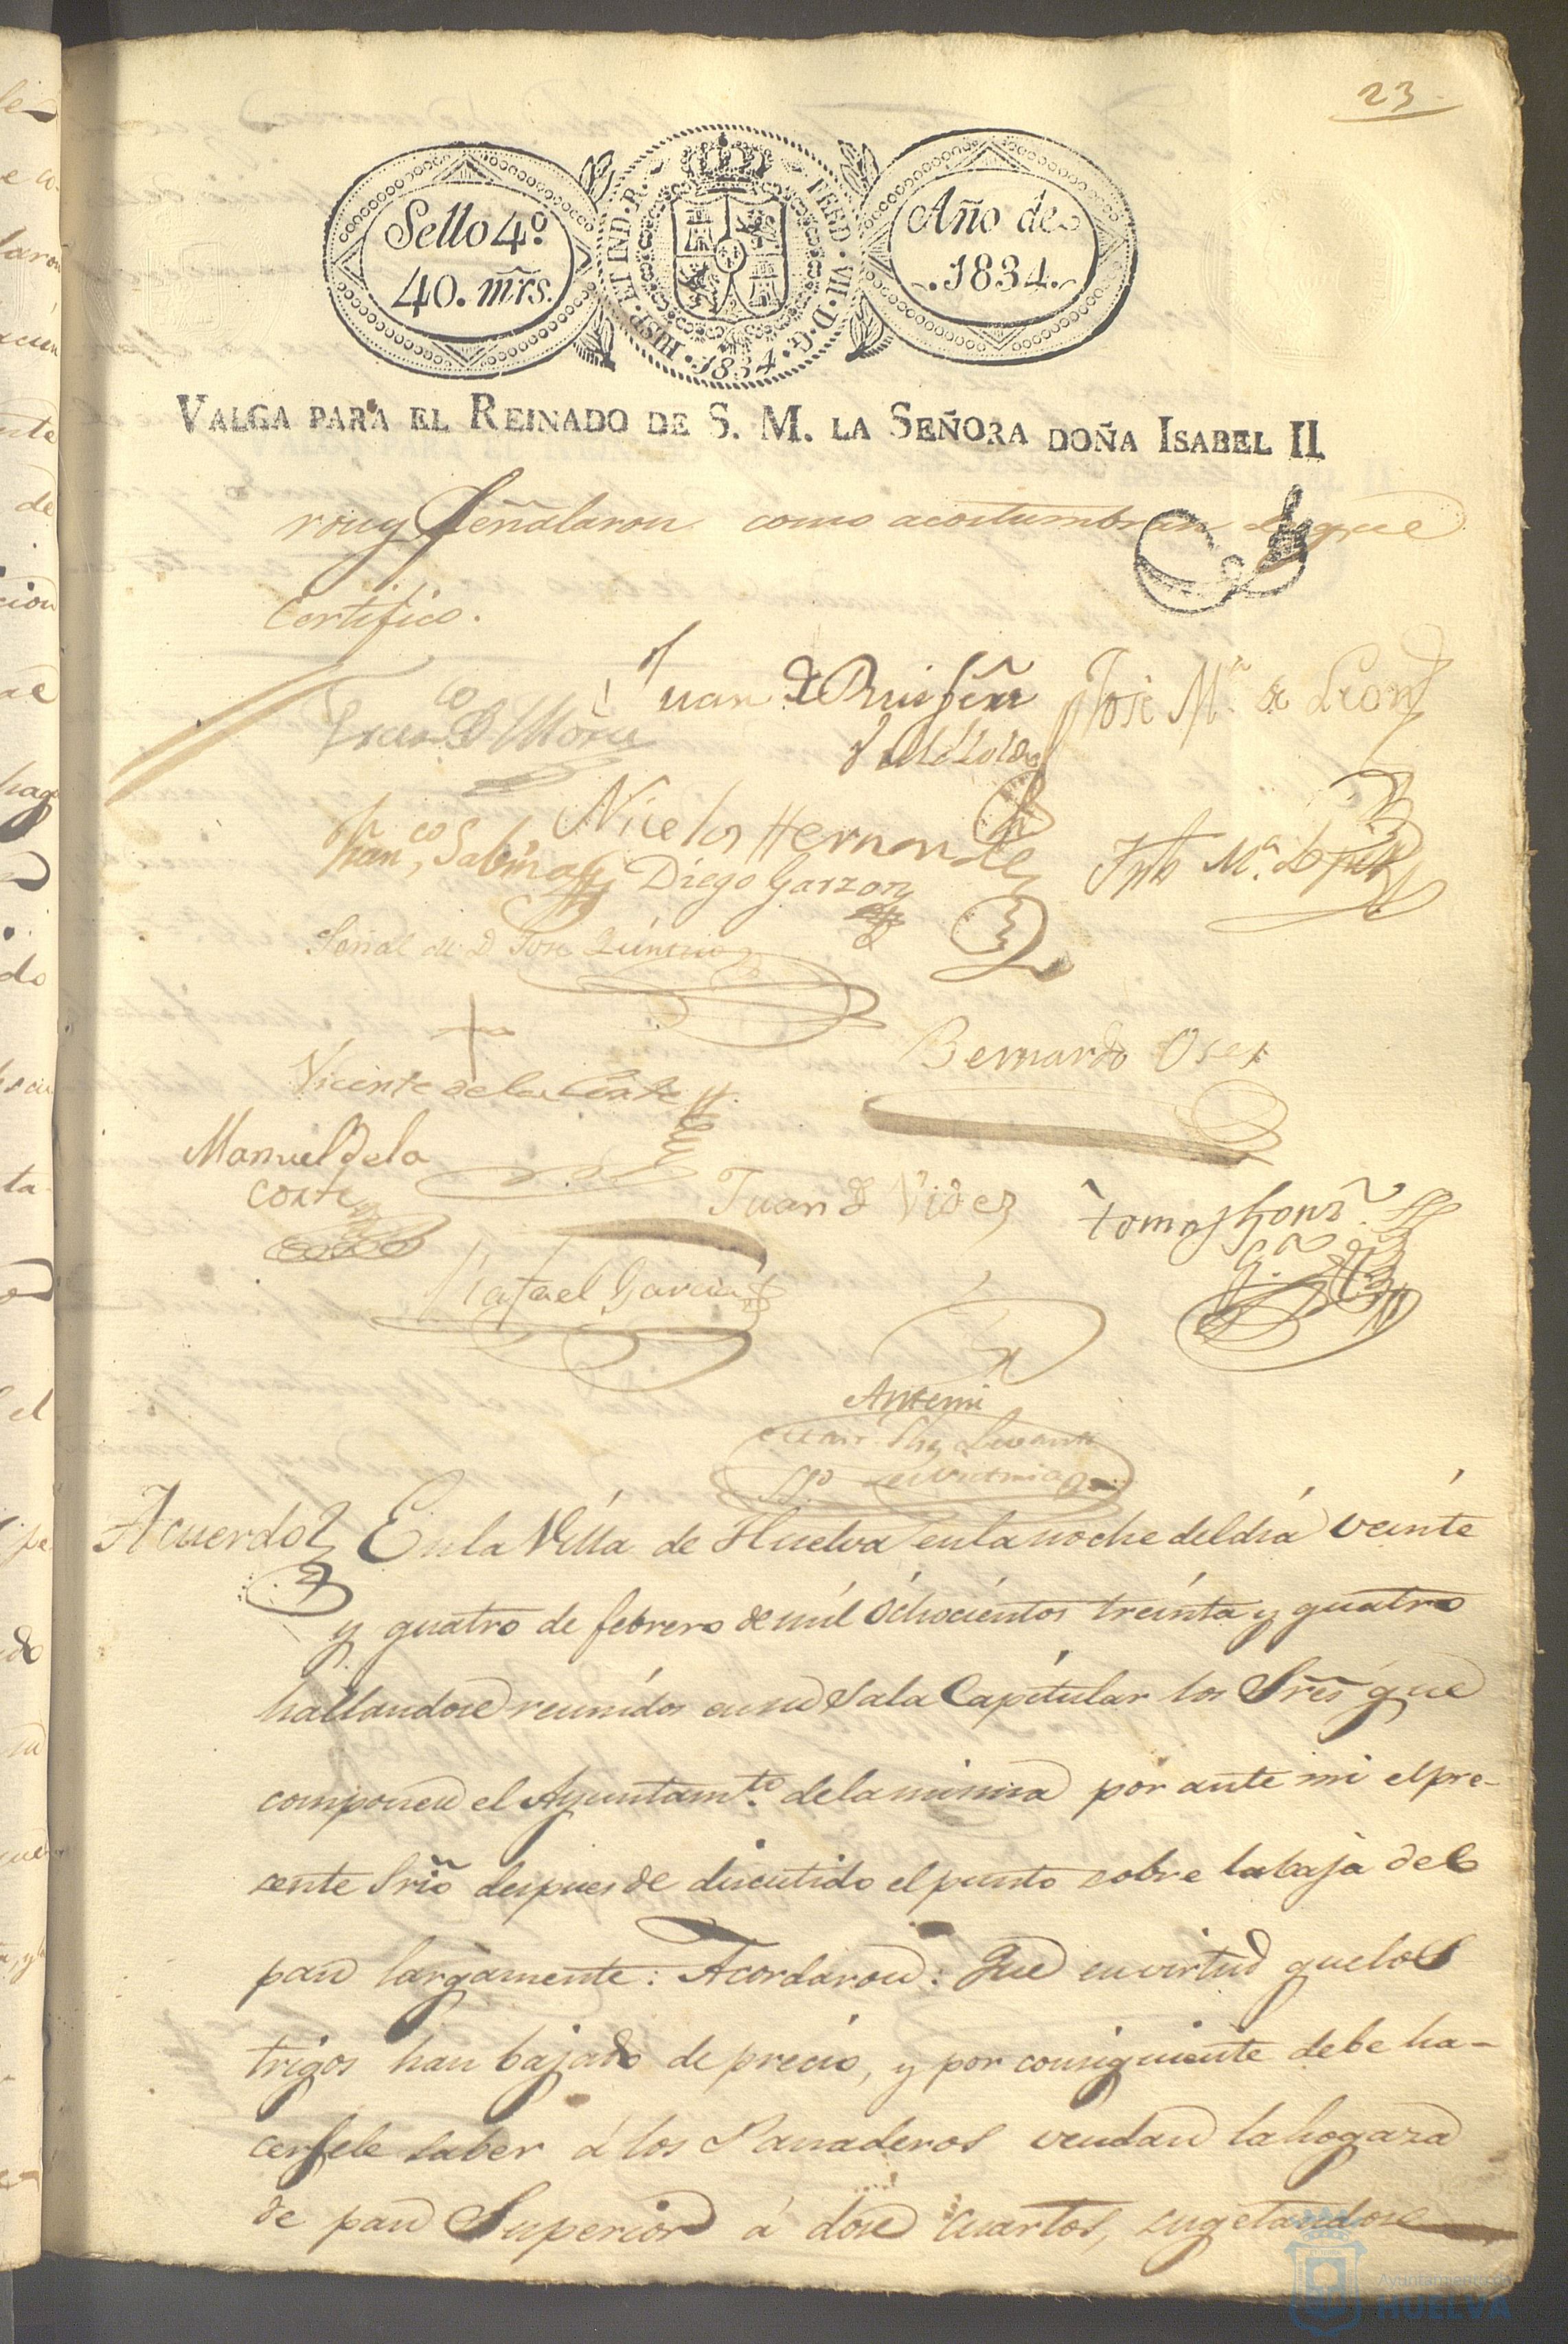 23
Sello 4º
40. mrs.
HISP. ET IND. R.
FERD. VII. D. G.
1834
Año de
1834.
VALGA PARA EL REINADO DE S. M. LA SEÑORA DOÑA ISABEL II
ron y Señalaron como acostumbran de que
Certifico.
Juan
José Mª de Leon
Nicolas Hernandez
Franco Sabino
Diego Garzon
Señal de D José Quintero
Bernardo
Vicente de la Corte
Manuel de la
Corte
Juan de Videz
Tomas
Rafael Garcia
Antemi
Acuerdo En la Villa de Huelva en la noche del dia veinte
y quatro de febrero de mil ochocientos treinta y quatro
hallandose reunidos en su Sala Capitular los Sres que
componen el Ayuntamto. de la misma por ante mi el pre-
sente Srio despues de discutido el punto sobre la baja del
pan largamente: Acordaron: Que en virtud que los
trigos han bajado de precio, y por consiguiente debe ha-
cersele saber á los Panaderos vendan la hogaza
de pan Superior á dose cuartos, sugetandose
Ayuntamiento de
HUELVA